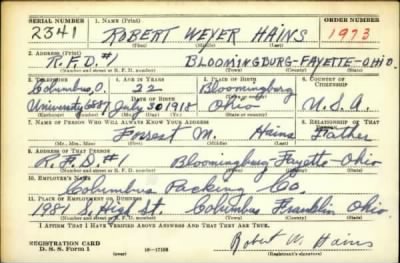 SERIAL NUMBER 1. NAME (Print) ORDER NUMBER
2341 ROBERT WEYER HAINS 1973
(First) (Middle) (Last)
2. ADDRESS (Print)
R.F.D.#1 BLOOMINGBURG-FAYETTE-OHIO.
(Number and street or R. F. D. number) (Town) (County) (State)
3. TELEPHONE 4. AGE IN YEARS 5. PLACE OF BIRTH 6. COUNTRY OF CITIZENSHIP
Columbus, O. 22 Bloomingburg
DATE OF BIRTH (Town or county)
University 6887 July 30 1918 Ohio U.S.A.
(Exchange) (Number) (Mo.) (Day) (Yr.) (State or country)
7. NAME OF PERSON WHO WILL ALWAYS KNOW YOUR ADDRESS 8. RELATIONSHIP OF THAT PERSON
Forrest M. Hains Father
(Mr., Mrs., Miss) (First) (Middle) (Last)
9. ADDRESS OF THAT PERSON
R.F.D.#1 Bloomingburg-Fayette-Ohio
(Number and street or R. F. D. number) (Town) (County) (State)
10. EMPLOYER'S NAME
Columbus Packing Co.
11. PLACE OF EMPLOYMENT OR BUSINESS
1981 S. High St Columbus Franklin Ohio
(Number and street or R. F. D. number) (Town) (County) (State)
I AFFIRM THAT I HAVE VERIFIED ABOVE ANSWERS AND THAT THEY ARE TRUE.
REGISTRATION CARD
D. S. S. Form 1 (over) Robert W. Hains
(Registrant's signature)